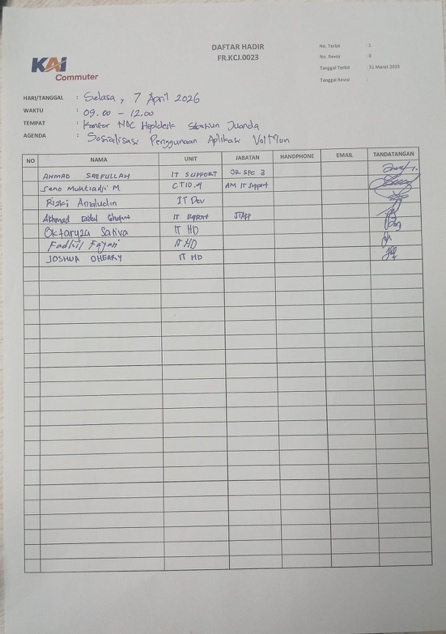 DAFTAR HADIR
FR.KCJ.0023
No. Terbit : 1
No. Revisi : 0
Tanggal Terbit : 31 Maret 2023
Tanggal Revisi
KAI
Commuter
HARI/TANGGAL : Selasa, 7 April 2026
WAKTU : 09.00 - 12.00
TEMPAT : Kantor NOC Helpdesk Stasiun Juanda
AGENDA : Sosialisasi Penggunaan Aplikasi VolMon
NO NAMA UNIT JABATAN HANDPHONE EMAIL TANDATANGAN
AHMAD SAEFULLAH IT SUPPORT OR SPC 3
Seno Mukhtadji M CTID.4 AM IT Support
Rizki IT Dev
IT Support Staff
Oktaryza Sativa IT HD
Fadhil Fajari IT HD
JOSHUA OHEARY IT HD